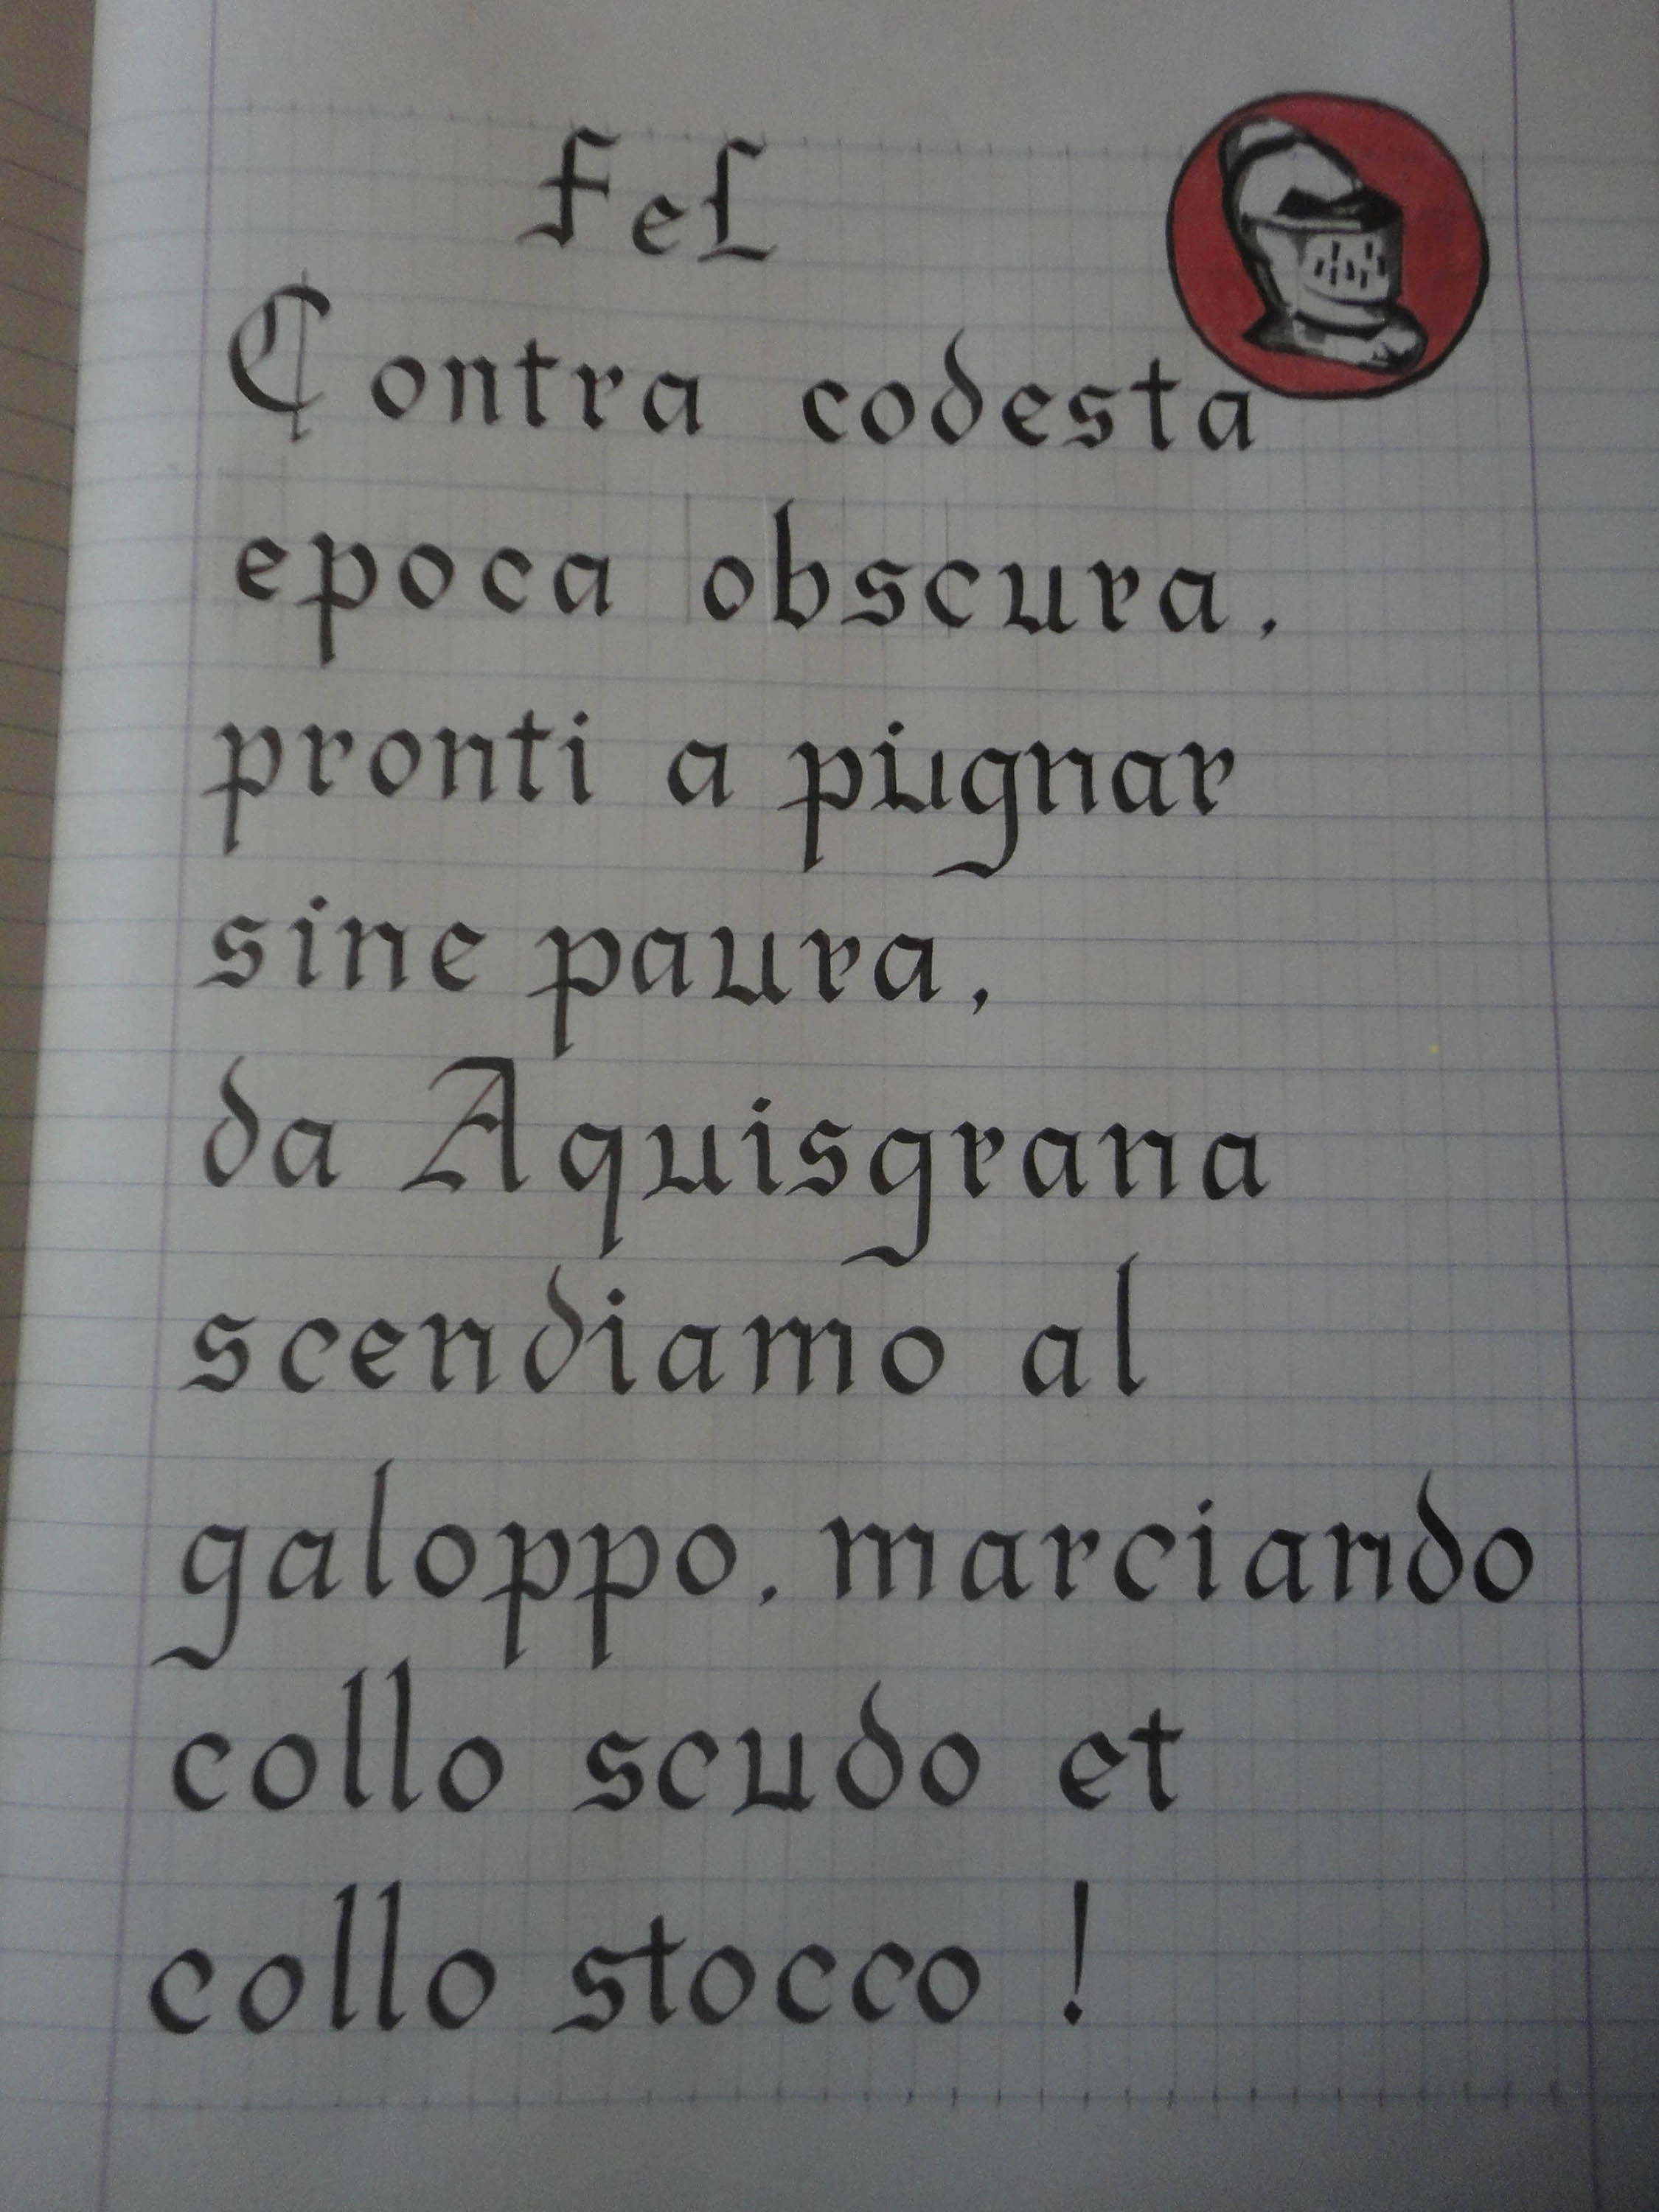 FeL
Contra codesta
epoca obscura,
pronti a pugnar
sine paura,
da Aquisgrana
scendiamo al
galoppo, marciando
collo scudo et
collo stocco !